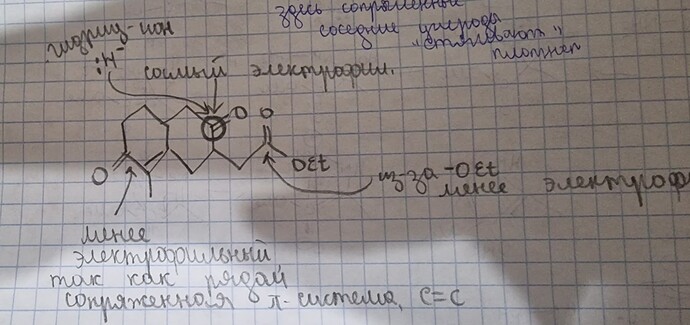 здесь сопряженные
соседние углерода
"стягивают"
плотнее
гидрид-ион
:H⁻
самый электрофил.
O O
OEt
O
из-за -OEt
менее электроф
менее
электрофильный
так как рядом
сопряженная π-система, C=C